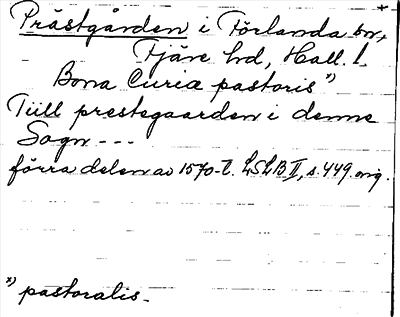 Prästgården i Förlanda sn,
Fjäre hd, Hall. l.
Bona Curia pastoris *)
Tiill prestegaarden i denne
Sogn ---
förra delen av 1570-t. LSLB II, s. 449 orig.
*) pastoralis.